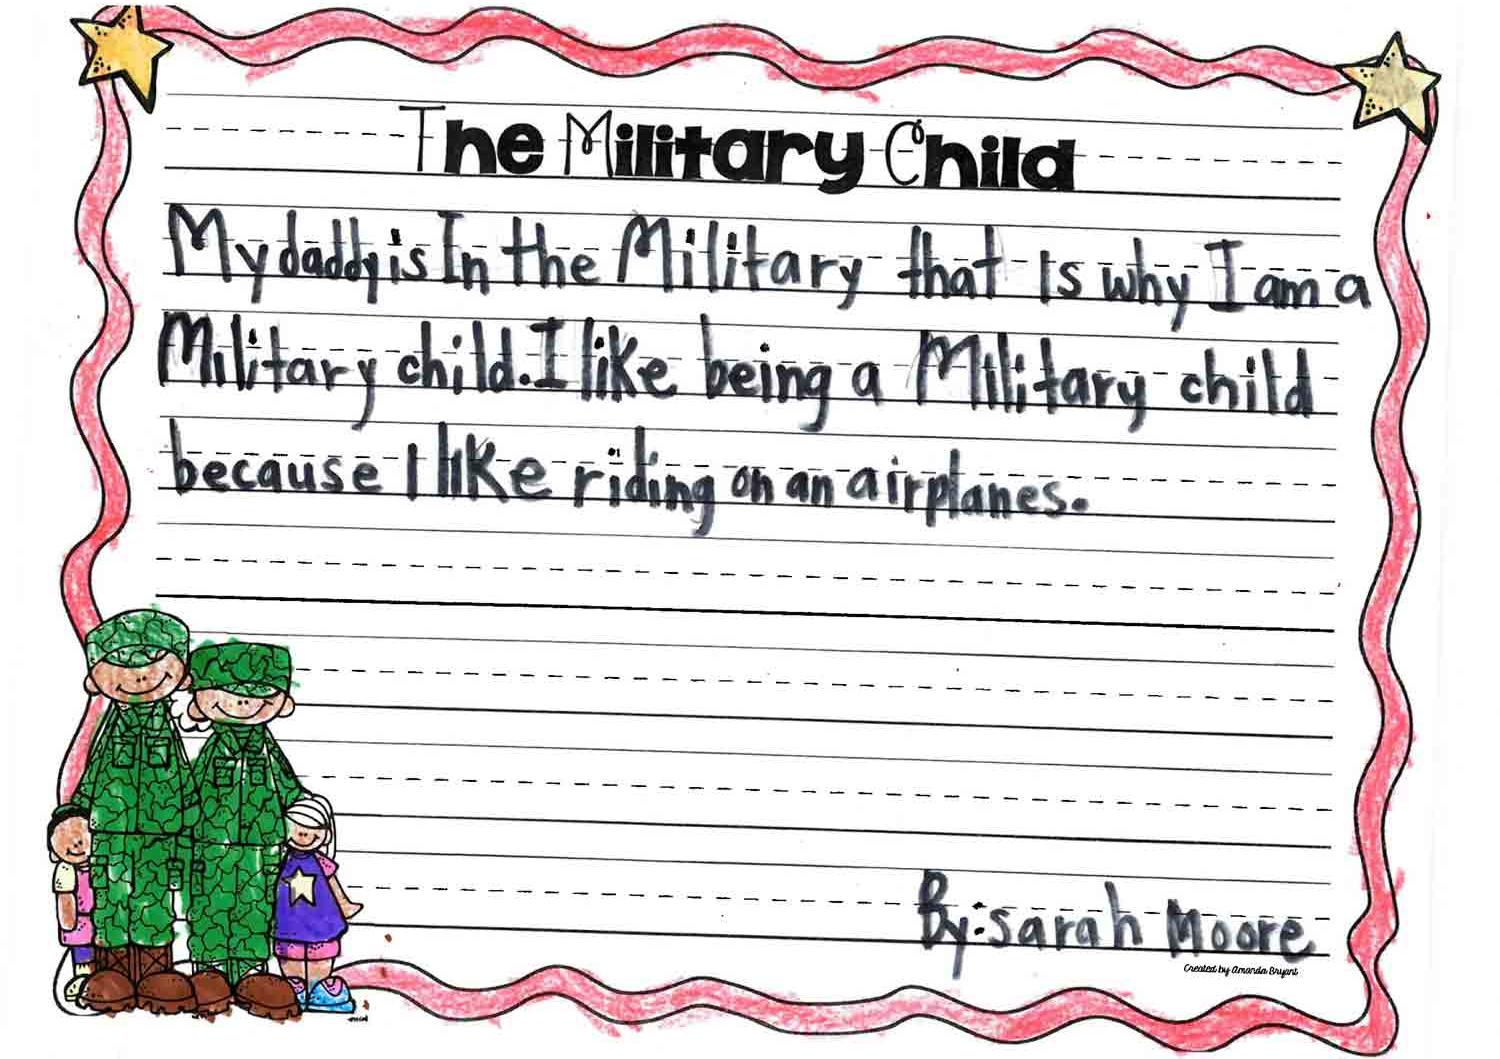 The Military Child
My daddy is In the Military that is why I am a
Military child. I like being a Military child
because I like riding on an airplanes.
By: sarah Moore
Created by Amanda Bryant